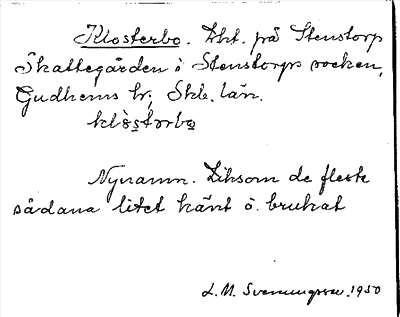 Klosterbo. Lht. på Stenstorp
Skattegården i Stenstorps socken,
Gudhems hr, Skb. län.
klòstərbo
Nynamn. Liksom de flesta
sådana litet känt o. brukat
L. M. Svenungsson. 1950